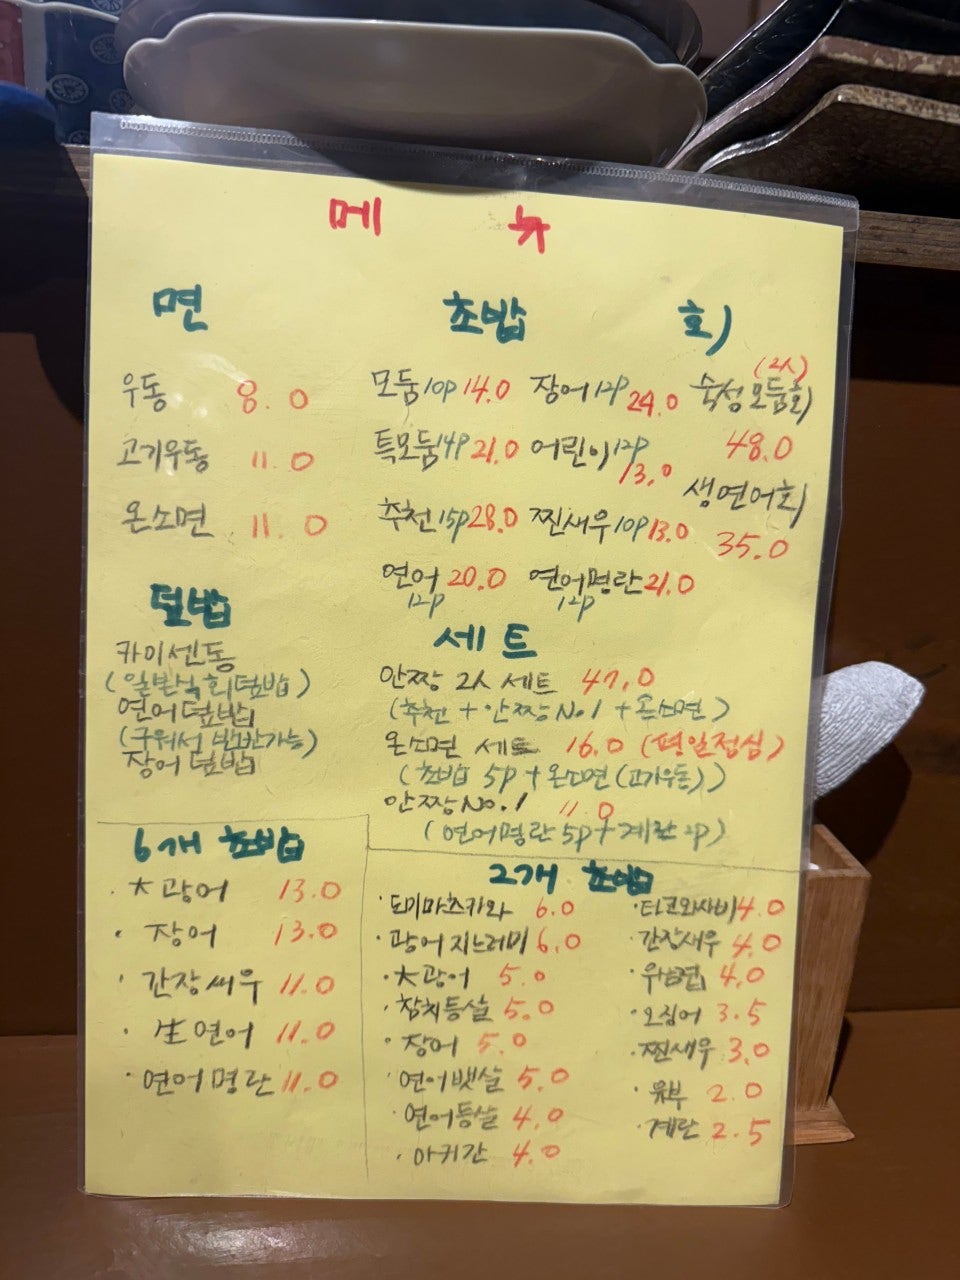 메 뉴
면
우동 8.0
고기우동 11.0
온소면 11.0
덮밥
카이센동
(일본식 회덮밥)
연어덮밥
(구워서 반반가능)
장어덮밥
초밥
모둠 10p 14.0
특모둠 14p 21.0
추천 15p 28.0
연어 20.0
12p
장어 12p 24.0
어린이 12p
13.0
찐새우 10p 13.0
연어명란 21.0
12p
회
(2人)
숙성모둠회
48.0
생연어회
35.0
세트
안짱 2人 세트 47.0
(추천 + 안짱 No.1 + 온소면)
온소면 세트 16.0 (평일점심)
(초밥 5p + 온소면 (고기우동))
안짱 No.1 11.0
(연어명란 5p + 계란 2p)
6개 초밥
· 大광어 13.0
· 장어 13.0
· 간장새우 11.0
· 生연어 11.0
· 연어명란 11.0
2개 초밥
· 도미마츠카와 6.0
· 광어지느러미 6.0
· 大광어 5.0
· 참치등살 5.0
· 장어 5.0
· 연어뱃살 5.0
· 연어등살 4.0
· 아키간 4.0
· 타코와사비 4.0
· 간장새우 4.0
4.0
· 오징어 3.5
· 찐새우 3.0
· 유부 2.0
· 계란 2.5